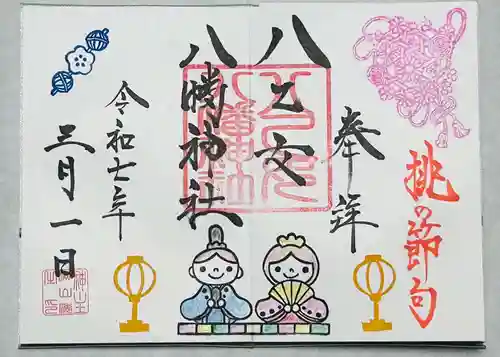 桃の節句
奉拝
八乙女
八幡神社
令和七年
三月一日